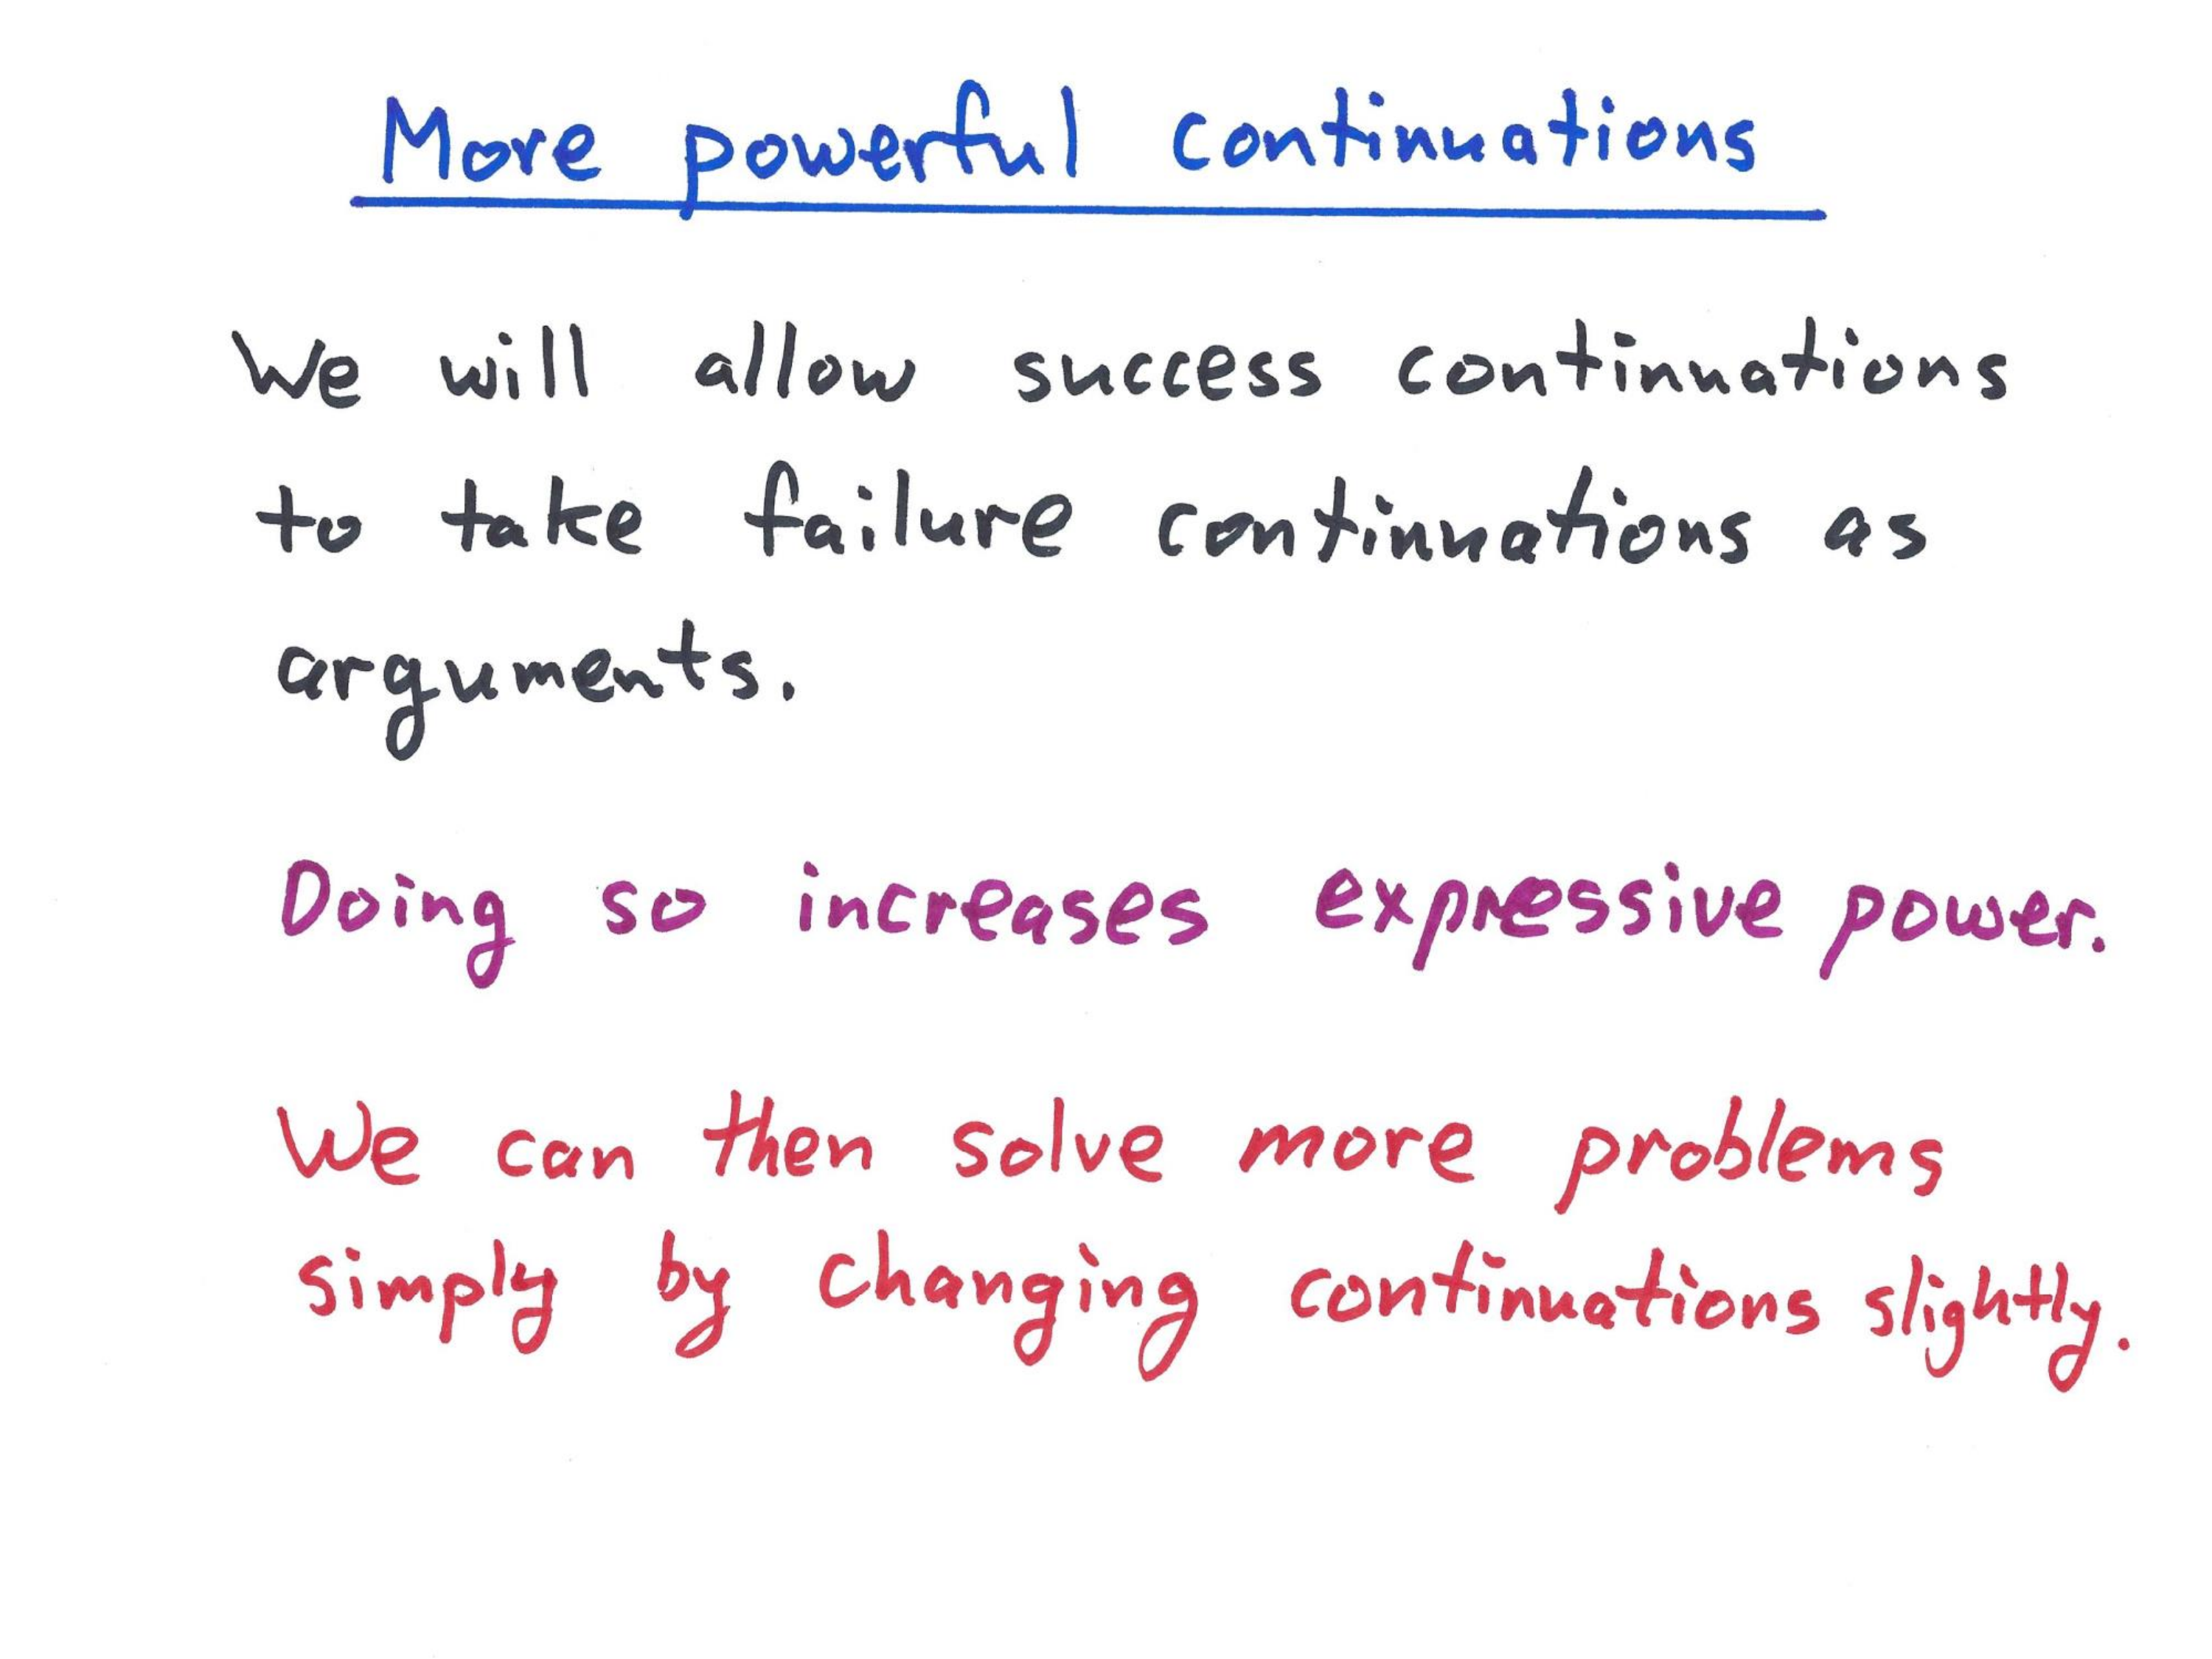 More powerful continuations
We will allow success continuations
to take failure continuations as
arguments.
Doing so increases expressive power.
We can then solve more problems
simply by changing continuations slightly.